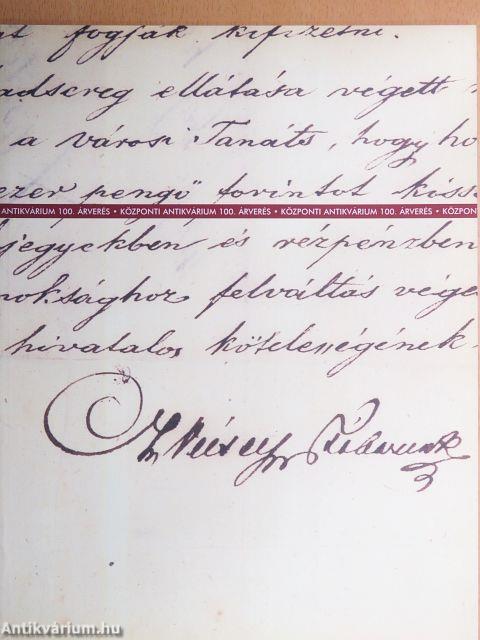 fogják kifizetni.
ellátása végett
a városi Tanáts, hogy ho
ezer pengő forintot kiss
ANTIKVÁRIUM 100. ÁRVERÉS • KÖZPONTI ANTIKVÁRIUM 100. ÁRVERÉS • KÖZPONTI ANTIKVÁRIUM 100. ÁRVERÉS • KÖZPON
jegyekben és rézpénzben
noksághoz felváltás vége
hivatalos kötelességének
Antikvárium.hu
Antikvárium.hu